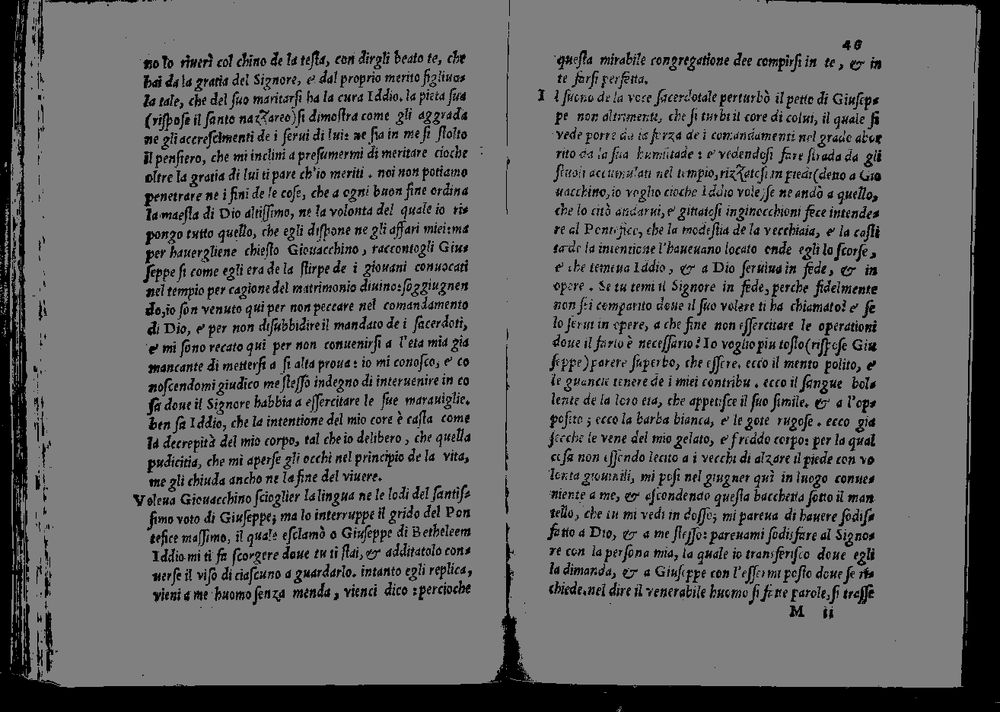 no lo riuerì col chino de la testa, con dirgli beato te, che
hai da la gratia del Signore, e dal proprio merito figliuo-
la tale, che del suo maritarsi ha la cura Iddio. la pieta sua
(rispose il santo nazzareo) si dimostra come gli aggrada
ne gli accrescimenti de i serui di lui: ne sia in me si stolto
il pensiero, che mi inclini a presumermi di meritare cioche
oltre la gratia di lui ti pare ch'io meriti. noi non potiamo
penetrare ne i fini de le cose, che a ogni buon fine ordina
la maesta di Dio altissimo, ne la volonta del quale io ri-
pongo tutto quello, che egli dispone ne gli affari miei: ma
per hauergliene chiesto Giouacchino, raccontogli Giu-
seppe si come egli era de la stirpe de i giouani conuocati
nel tempio per cagione del matrimonio diuino: soggiugnen
do, io son venuto qui per non peccare nel comandamento
di Dio, e per non disubbidire il mandato de i sacerdoti,
e mi sono recato qui per non conuenirsi a l'eta mia gia
mancante di mettersi a si alta proua: io mi conosco, e co
noscendomi giudico me stesso indegno di interuenire in co
sa doue il Signore habbia a essercitare le sue marauiglie.
ben sa Iddio, che la intentione del mio core è casta come
la decrepità del mio corpo, tal che io delibero, che quella
pudicitia, che mi aperse gli occhi nel principio de la vita,
me gli chiuda ancho ne la fine del viuere.
Voleua Giouacchino scioglier la lingua ne le lodi del santis-
simo voto di Giuseppe; ma lo interruppe il grido del Pon
tefice massimo, il quale esclamò o Giuseppe di Betheleem
Iddio mi ti fa scorgere doue tu ti stai, & additatolo con-
uerse il viso di ciascuno a guardarlo. intanto egli replica,
vieni a me huomo senza menda, vienci dico: percioche
46
questa mirabile congregatione dee compirsi in te, & in
te farsi perfetta.
I l suono de la voce sacerdotale perturbò il petto di Giusep-
pe non altrimenti, che si turbi il core di colui, il quale si
vede porre da la forza de i comandamenti nel grado abor
rito da la sua humilitade: e vedendosi fare strada da gli
stuoli accumulati nel tempio, rizzatosi in piedi (detto a Gio
uacchino, io voglio cioche Iddio vole) se ne andò a quello,
che lo citò andarui, e gittatosi inginocchioni fece intende-
re al Pontefice, che la modestia de la vecchiaia, e la casti
ta de la intentione l'haueuano locato onde egli lo scorse,
e che temeua Iddio, & a Dio seruiua in fede, & in
opere. Se tu temi il Signore in fede, perche fidelmente
non sei comparito doue il suo volere ti ha chiamato? e se
lo serui in opere, a che fine non essercitare le operationi
doue il farlo è necessario? Io voglio piu tosto (rispose Giu
seppe) parere superbo, che essere. ecco il mento polito, e
le guancie tenere de i miei contribu. ecco il sangue bol-
lente de la loro eta, che appetisce il suo simile. & a l'op-
posito; ecco la barba bianca, e le gote rugose. ecco gia
secche le vene del mio gelato, e freddo corpo: per la qual
cosa non essendo lecito a i vecchi di alzare il piede con vo
lonta giouenili, mi posi nel giugner quì in luogo conue-
niente a me, & ascondendo questa bacchetta sotto il man
tello, che tu mi vedi in dosso; mi pareua di hauere sodis-
fatto a Dio, & a me stesso: pareuami sodisfare al Signo-
re con la persona mia, la quale io transferisco doue egli
la dimanda, & a Giuseppe con l'essermi posto doue se ri-
chiede. nel dire il venerabile huomo si fatte parole, si trasse
M ii